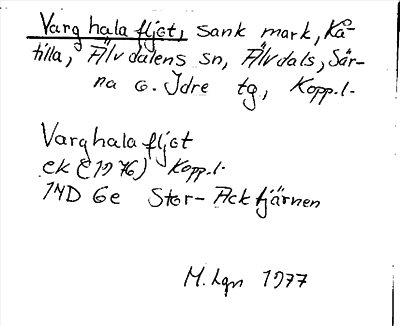 Varghalafljot, sank mark, Kå-
tilla, Älvdalens sn, Älvdals, Sär-
na o. Idre tg, Kopp.l.
Varghalafljot
ek (1976) Kopp.l.
1ND 6e Stor-Acktjärnen
M. Lgn 1977